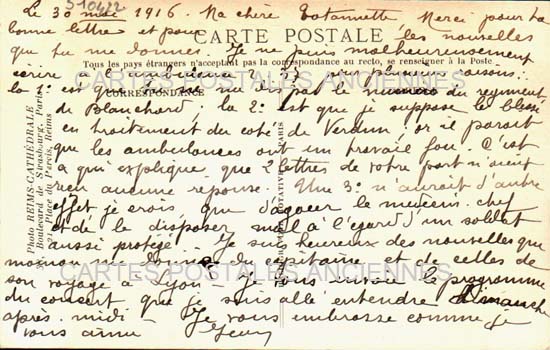 510422
Le 30 mai 1916. Ma chère Totannette Merci pour ta
bonne lettre et pour les nouvelles
CARTE POSTALE
que tu me donnes. Je ne puis malheureusement
Tous les pays étrangers n'acceptant pas la correspondance au recto, se renseigner à la Poste
écrire à l'ambulance 23 pour plusieurs raisons.
CARTES POSTALES ANCIENNES
la 1e est que tu ne me dis pas le numéro du régiment
CORRESPONDANCE
de Blanchard, la 2e est que je suppose le blessé
en traitement du côté de Verdun, or il paraît
que les ambulances ont un travail fou. C'est
ce qui explique que 2 lettres de votre part n'aient
reçu aucune réponse. Une 3e n'aurait d'autre
effet je crois, que d'agacer le médecin-chef
et de le disposer mal à l'égard d'un soldat
aussi protégé. Je suis heureux des nouvelles que
maman me donne du capitaine et de celles de
CARTES POSTALES ANCIENNES
son voyage à Lyon - Je vous envoie le programme
du concert que je suis allé entendre dimanche
après-midi - Je vous embrasse comme je
vous aime Jean
Photo REIMS-CATHÉDRALE
Boulevard de Strasbourg, Paris
2, Place du Parvis, Reims